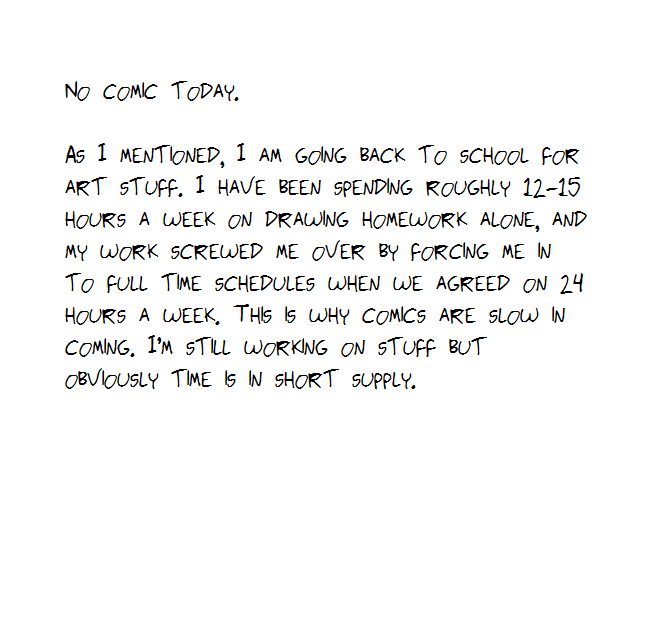 No comic today.
As I mentioned, I am going back to school for
art stuff. I have been spending roughly 12-15
hours a week on drawing homework alone, and
my work screwed me over by forcing me in
to full time schedules when we agreed on 24
hours a week. This is why comics are slow in
coming. I'm still working on stuff but
obviously time is in short supply.